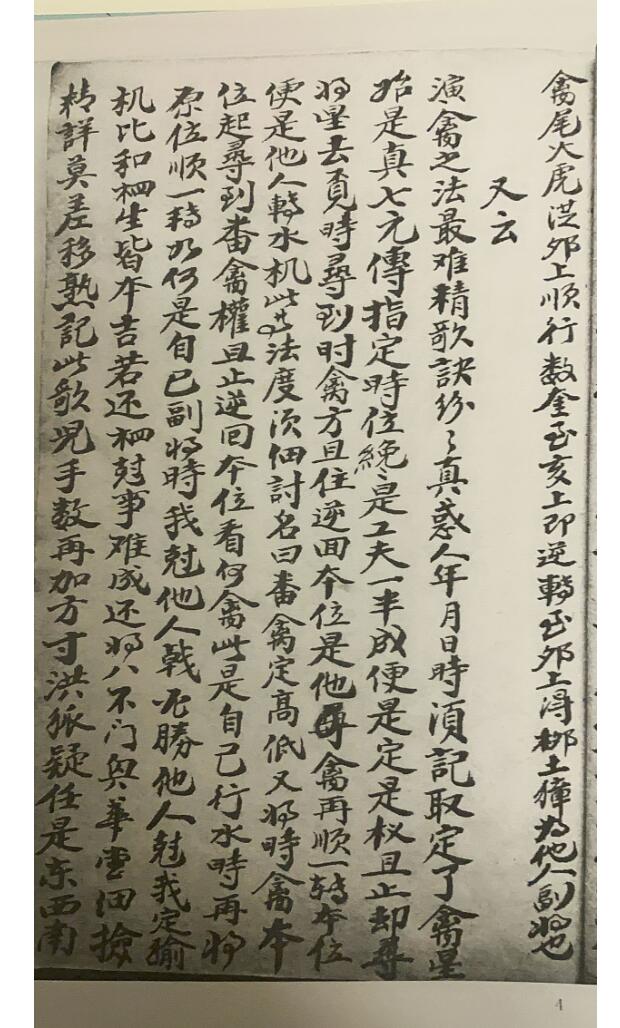 禽尾火虎從卯上順行数奎至亥上即逆轉至卯上得柳土獐為他人副将也
又云
演禽之法最难精歌訣紛々真惑人年月日時須記取定了禽星
始是真七元傳指定時位繞是工夫一半成便是定是权且止却尋
将星去覔時尋到时禽方且住逆回本位是他尋禽再順一轉本位
便是他人轉水机此些法度须细討名曰番禽定高低又将時禽本
位起尋到番禽權且止逆回本位看何禽此是自己行水時再将
原位順一轉为何是自己副将時我尅他人戰必勝他人尅我定输
机比和相生皆本吉若还相尅事难成还将八不门與華盖细撿
精詳莫差移熟記此歌児手数再加方寸洪狐疑任是东西南
4